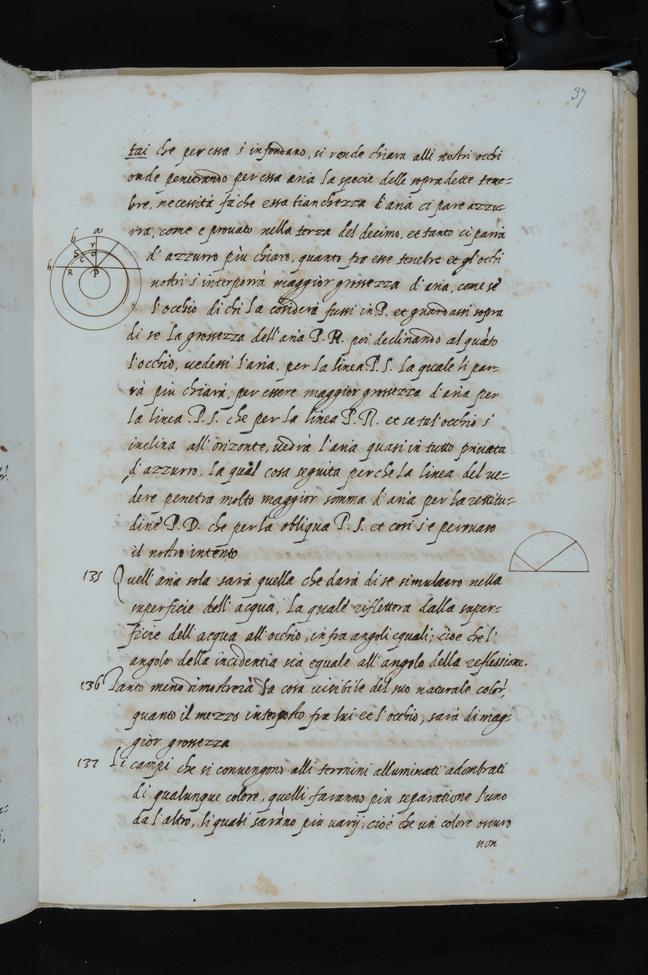 37
tai che per essa s'infondano, si rende chiara alli nostri occhi
onde penetrando per essa aria la specie delle sopradette tene=
bre, necessità fà che essa bianchezza d'aria ci pare azzu=
rra, come è provato nella terza del decimo, et tanto ci parrà
d'azzurro più chiaro, quanto fra esse tenebre et gl'occhi
nostri s'interporrà maggior grossezza d'aria, come se
l'occhio di chi la considera fussi in P. et guardassi sopra
di se la grossezza dell'aria P. R. poi declinando alquàto
l'occhio, vedessi l'aria, per la linea P. S. la quale li par=
rà più chiara, per essere maggior grossezza d'aria per
la linea P. S. che per la linea P. R. et se tal'occhio s'
inclina all'orizonte, vedrà l'aria quasi in tutto privata
d'azzurro, la qual cosa seguita perche la linea del ve=
dere penetra molto maggior somma d'aria per la rettitu=
dine P. D. che per la obliqua P. S. et cosi s'è persuaso
il nostro intento
135 Quell'aria sola sarà quella che darà di se simulacro nella
superficie dell'acqua, la quale rifletterà dalla super=
ficie dell'acqua all'occhio, infra angoli equali; cioe che l'
angolo della incidentia sia equale all'angolo della reflessione.
136 Tanto meno dimostrerà la cosa visibile del suo naturale color,
quanto il mezzo interposto fra lui et l'occhio, sarà di mag=
gior grossezza
137 Li campi che si convengono alli termini alluminati adombrati
di qualunque colore, quelli faranno piu separatione l'uno
da l'altro, li quali saràno piu varij, cioè che un colore oscuro
non